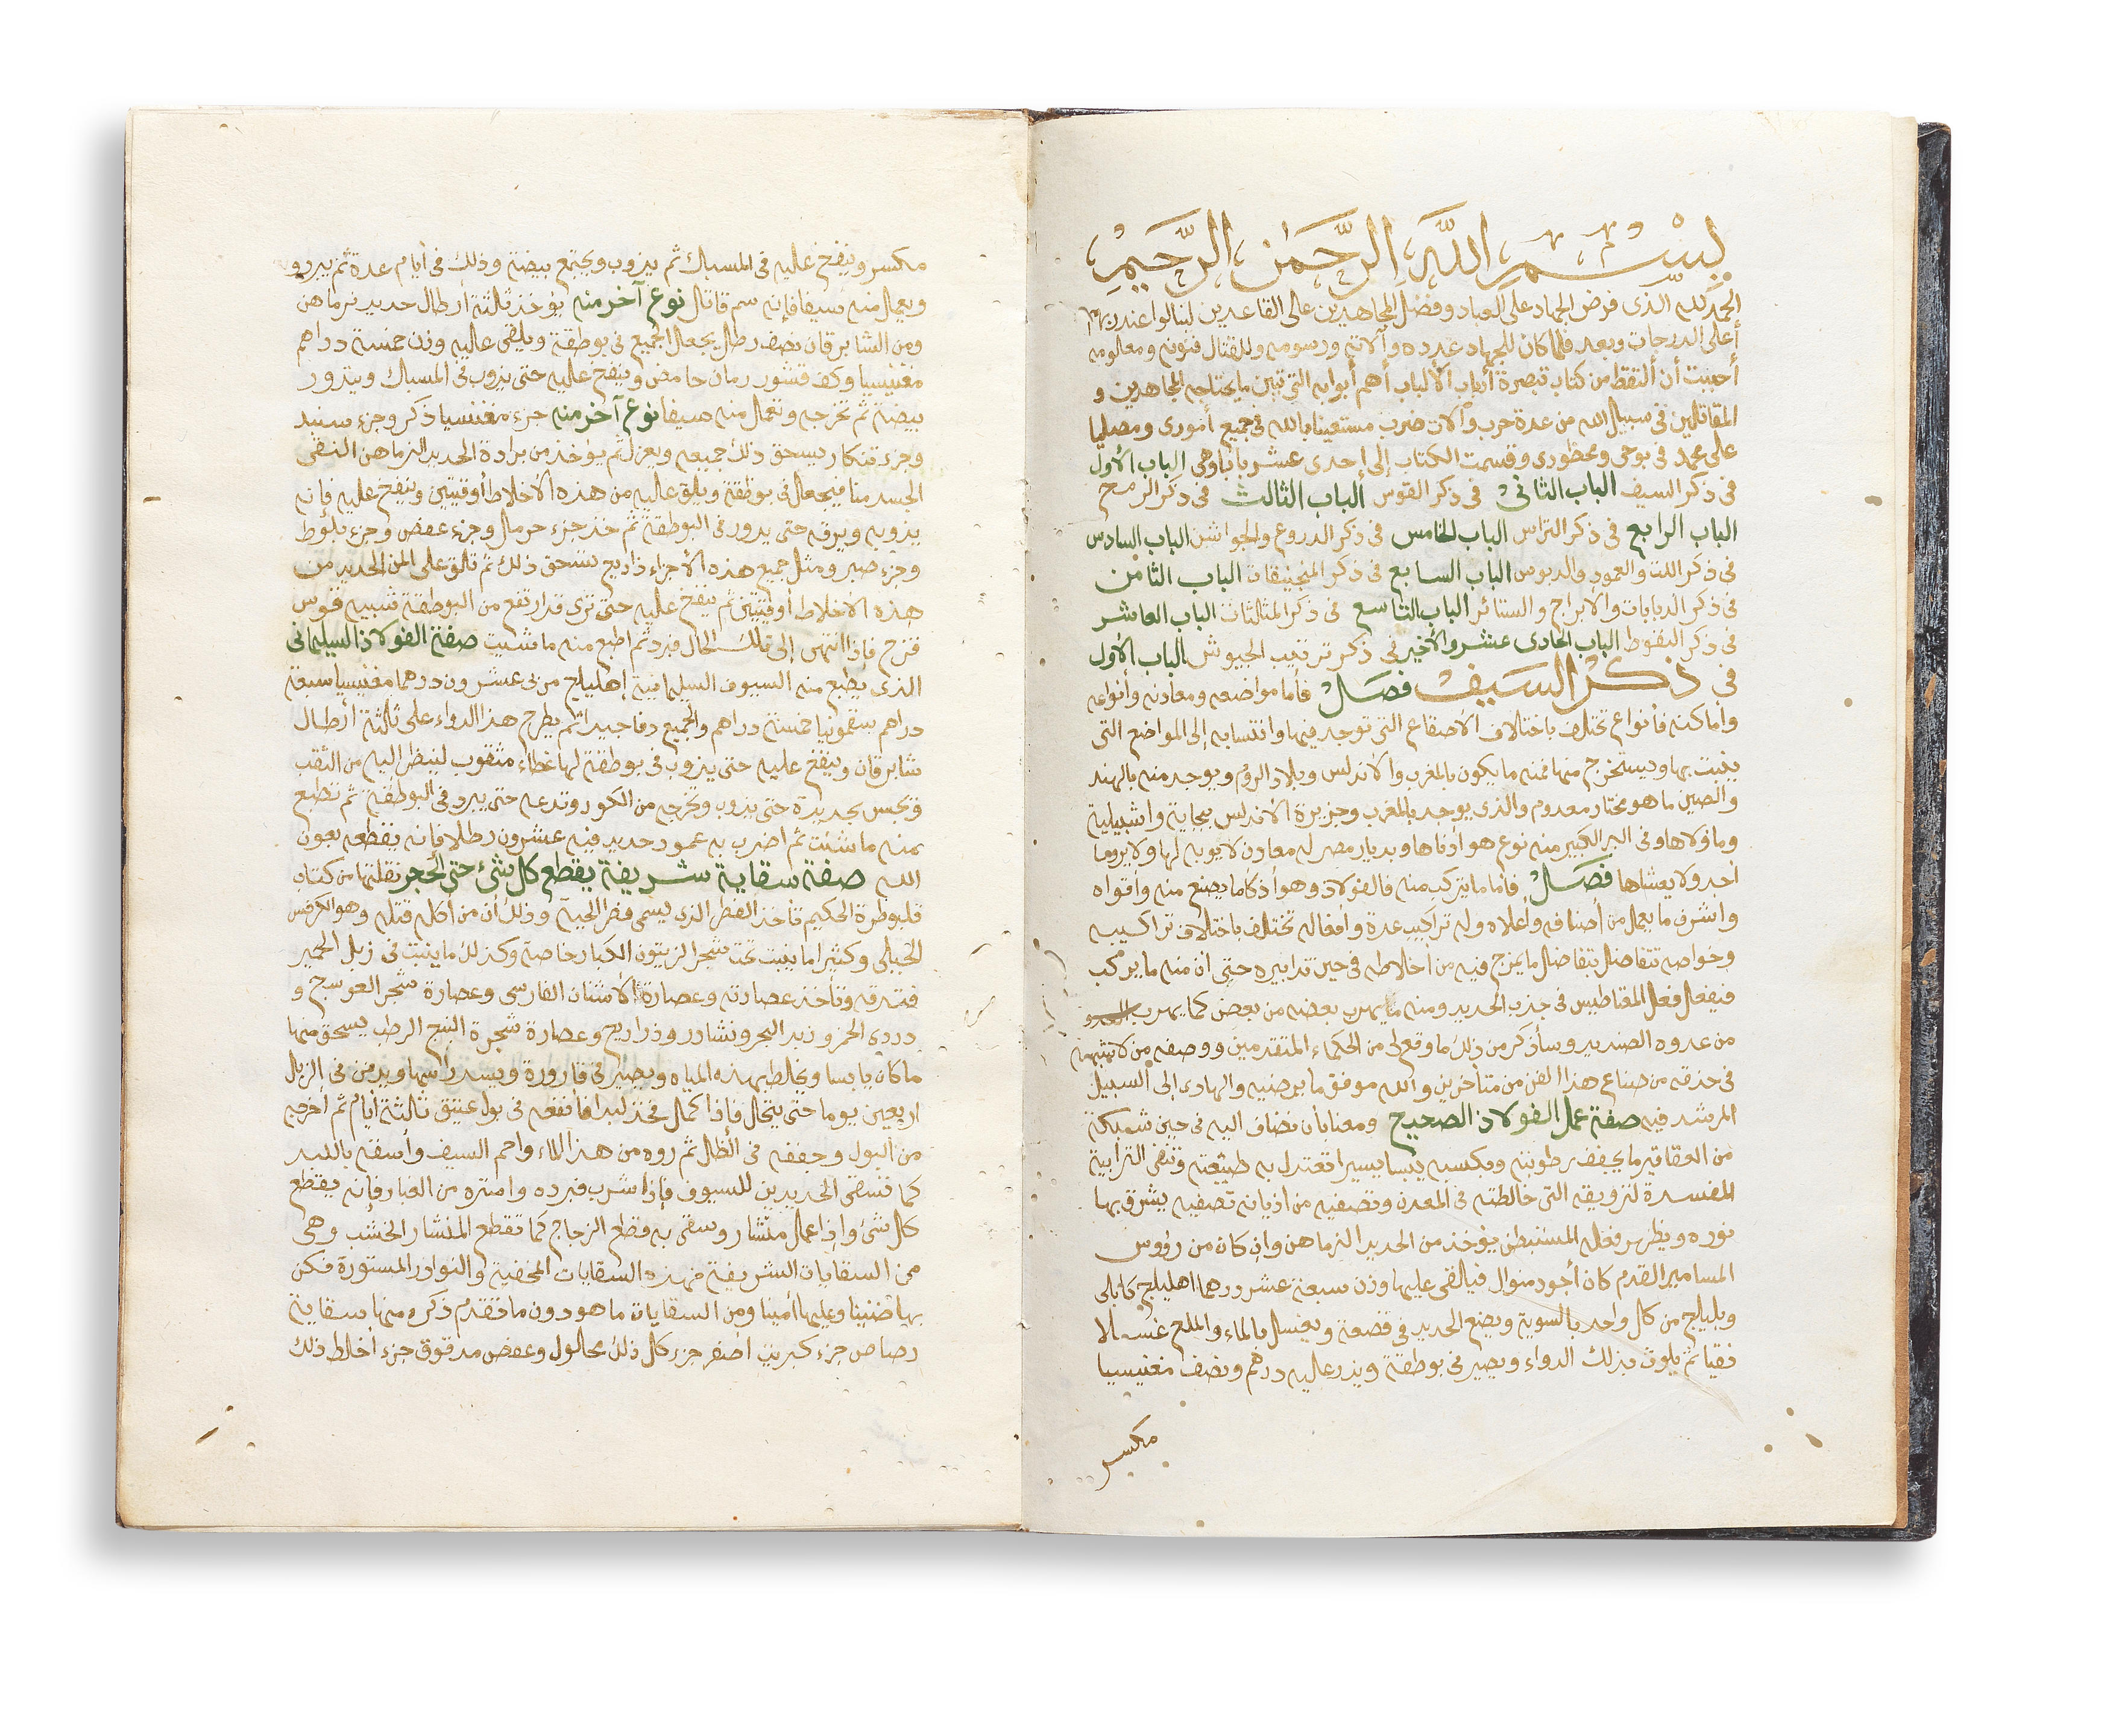 بِسْمِ اللَّهِ الرَّحْمَٰنِ الرَّحِيمِ
الحمد لله الذى فرض الجهاد على العباد وفضل المجاهدين على القاعدين لينالوا عند ربهم
أعلى الدرجات وبعد فلما كان للجهاد عدده وآلاته ورسومه وللقتال فنونه ومعلومه
أحببت أن ألتقط من كتاب تبصرة أرباب الألباب أهم أبوابه التى تبين ما يحتاجه المجاهدين و
المقاتلين فى سبيل الله من عدة حرب وآلات ضرب مستعينا بالله فى جميع أمورى ومصليا
على محمد فى بوحى ومحظورى وقسمت الكتاب إلى إحدى عشر بابا وهى الباب الأول
فى ذكر السيف الباب الثانى فى ذكر القوس الباب الثالث فى ذكر الرمح
الباب الرابع فى ذكر التراس الباب الخامس فى ذكر الدروع والجواشن الباب السادس
فى ذكر اللت والعمود والدبوس الباب السابع فى ذكر المنجنيقات الباب الثامن
فى ذكر الدبابات والأبراج والستائر الباب التاسع فى ذكر المثلثات الباب العاشر
فى ذكر النفوط الباب الحادى عشر والأخير فى ذكر ترتيب الجيوش الباب الأول
فى ذكر السيف فصل فأما مواضعه ومعادنه وأنواعه
وأماكنه فأنواع تختلف باختلاف الأصقاع التى توجد فيها وانتسابه إلى المواضع التى
ينبت بها ويستخرج منها فمنه ما يكون بالمغرب والأندلس وبلاد الروم ويوجد منه بالهند
والصين ما هو مختار معدوم والذى يوجد بالمغرب وجزيرة الأندلس ببجاية واشبيلية
وما والاها وفى البر الكبير منه نوع هو أدناها وبديار مصر له معادن لا يوبه لها ولا يرومها
أحد ولا يغشاها فصل فأما ما يتركب منه فالفولاذ وهو أذكا ما يصنع منه وأقواه
وأشرف ما يعمل من أصنافه وأعلاه وله تراكيب عدة وأفعاله تختلف باختلاف تراكيبه
وخواصه تتفاضل بتفاضل ما يمزج فيه من أخلاطه فى حين تدابيره حتى ان منه ما يركب
فيفعل فعل المغناطيس فى جذب الحديد ومنه ما يهرب بعضه من بعض كما يهرب العدو
من عدوه الصنديد وسأذكر من ذلك ما وقع لى من الحكماء المتقدمين ووصفه من لا شبهة
فى حذقه من صناع هذا الفن من متأخرين والله موفق ما يرضيه والهادى إلى السبيل
المرشد فيه صفة عمل الفولاذ الصحيح ومعنا بأن يضاف اليه فى حين تسبيكه
من العقاقير ما يجفف رطوبته ويكسبه يبسا يسيرا تعتدل به طبيعته وتنفى الترابية
المفسدة لتزويقه التى خالطته فى المعدن وتصفيه من أذيانه تصفيه يشرق بها
نوره ويظهر فعله المستبطن يؤخذ من الحديد النرماهن وإن كان من رؤوس
المسامير القدم كان أجود منوال فيلقى عليها وزن سبعة عشر درهما اهليلج كابلى
وبليلج من كل واحد بالسوية ويضع الحديد فى قصعة ويغسل بالماء والملح غسلا
نقيا ثم يلوث بذلك الدواء ويصير فى بوطقة ويذر عليه درهم ونصف مغنيسيا
مكسر
مكسر وينفخ عليه فى المسباك ثم يذوب ويجتمع بيضة وذلك فى أيام عدة ثم يبرد و
ويعمل منه سيفا فإنه سم قاتل نوع آخر منه يؤخذ ثلثة أرطال حديد نرماهن
ومن الشابرقان نصف رطل يجعل الجميع فى بوطقة ويلقى عليه وزن خمسة دراهم
مغنيسيا وكف قشور رمان حامض وينفخ عليه حتى يذوب فى المسباك ويتدور
بيضة ثم تخرجه وتعمل منه سيفا نوع آخر منه جزء مغنيسيا ذكر وجزء سنبد
وجزء تنكار يسحق ذلك جميعه ويعزل ثم يؤخذ من برادة الحديد النرماهن النقى
الجسد منا فيجعل فى بوطقة ويلقى عليه من هذه الأخلاط أوقيتين وينفخ عليه فإنه
يذوبه ويرقه حتى يدور فى البوطقة ثم خذ جزء حرمل وجزء عفص وجزء بلوط
وجزء صبر ومثل جميع هذه الأجزاء ذراريح تسحق ذلك ثم تلق على المن الحديد من
هذه الأخلاط أوقيتين ثم ينفخ عليه حتى ترى قد ارتفع من البوطقة شبيه قوس
قزح فإذا انتهى إلى تلك الحال فبرد ثم اطبع منه ما شيت صفة الفولاذ السليمانى
الذى يطبع منه السيوف السليمانية إهليلج مربى عشرون درهما مغنيسيا سبعة
دراهم سقمونيا خمسة دراهم والجميع دقا جيدا ثم يطرح هذا الدواء على ثلثة أرطال
شابرقان وينفخ عليه حتى يذوب فى بوطقة لها غطاء مثقوب لينظر اليه من الثقب
وتحس بحديدة حتى يذوب وتخرجه من الكور وتدعه حتى يبرد فى البوطقة ثم تطبع
منه ما شئت ثم اضرب به عمود حديد فيه عشرون رطلا فإنه يقطعه بعون
الله صفة سقاية شريفة يقطع كل شىء حتى الحجر نقلتها من كتاب
قلبوطرة الحكيم تأخذ الفطر الذى يسمى فطر الحية وذلك أن من أكله قتله وهو الكرفس
الجبلى وكثيرا ما ينبت تحت شجر الزيتون الكبار خاصة وكذلك ما ينبت فى زبل الحمير
فتدقه وتأخذ عصارته وعصارة الأشنان الفارسى وعصارة شجر العوسج و
دردى الخمر وزبد البحر ونشادر وذراريح وعصارة شجرة البنج الرطب يسحق منها
ما كان يابسا ويخلط بهذه المياه ويصير فى قارورة ويسد راسها ويدفن فى الزبل
أربعين يوما حتى ينحل فإذا كمل فخذ لبدا فأنقعه فى بول عتيق ثلثة أيام ثم اخرجه
من البول وجففه فى الظل ثم روه من هذا الماء واحم السيف وأسقه باللبد
كما تسقى الحديدين للسيوف فإذا شرب فبرده واستره من الغبار فإنه يقطع
كل شئ وإذا عمل منشار وسقى به قطع الزجاج كما تقطع المنشار الخشب وهى
من السقايات الشريفة فهذه السقايات المخفية والنوادر المستورة فكن
بها ضنينا وعليها أمينا ومن السقايات ما هو دون ما تقدم ذكره منها سقاية
رصاص جزء كبريت اصفر جزء كل ذلك محلول وعفص مدقوق جزء أخلط ذلك